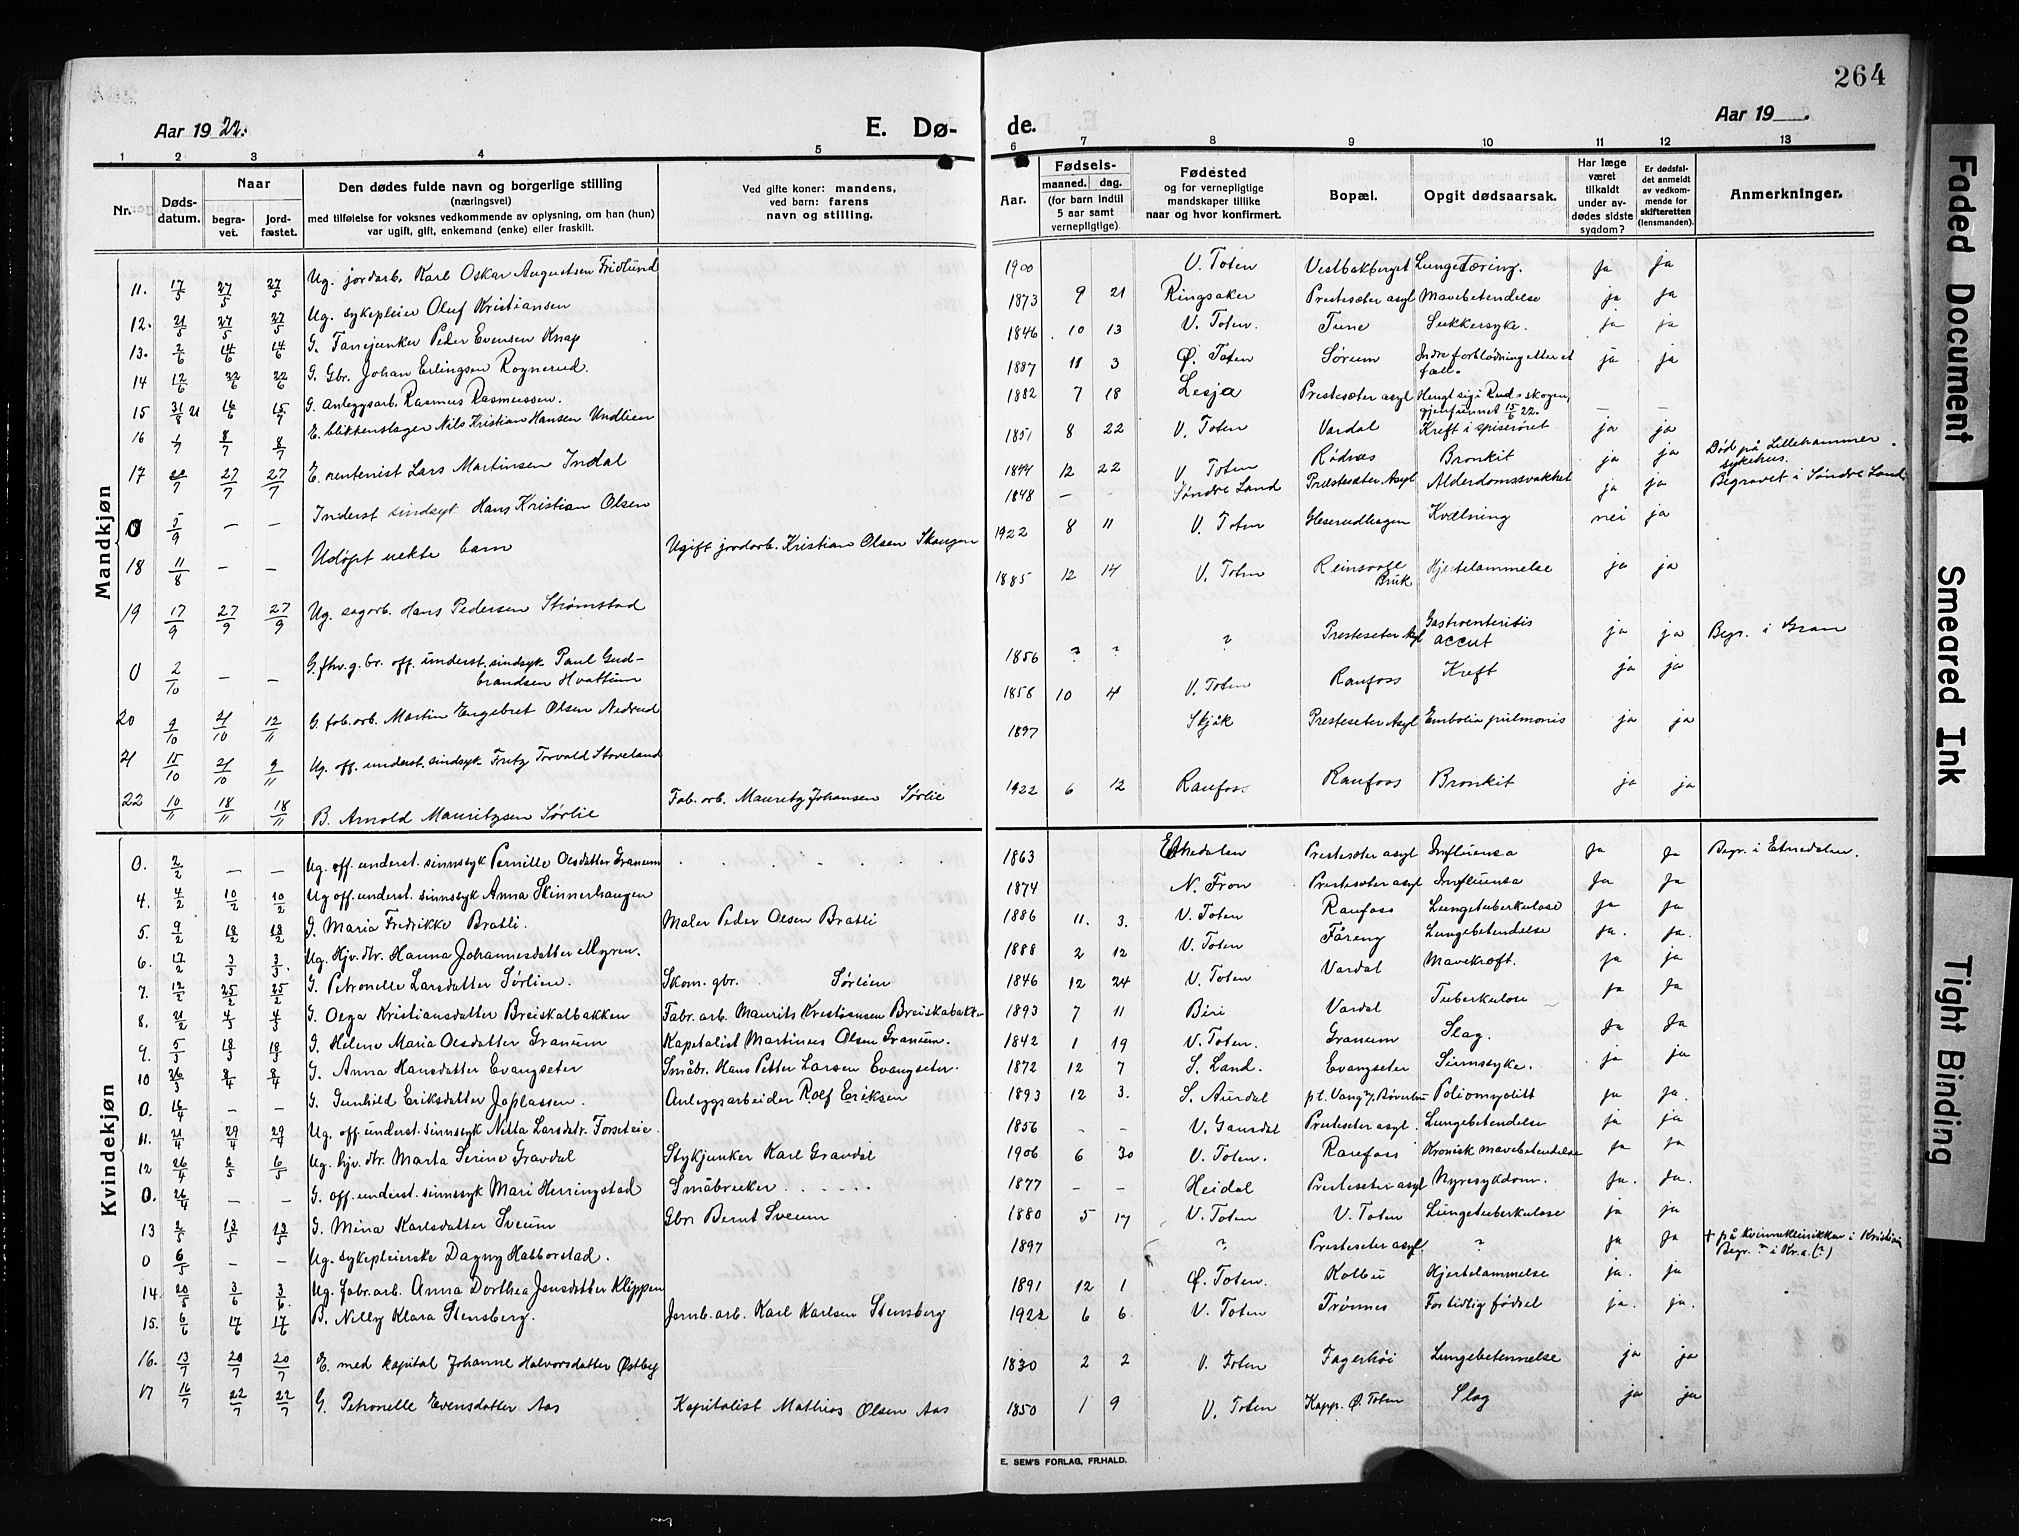 264
Aar 1922.
E. Dø-
de.
Aar 19 .
1 2 3 4 5 6 7 8 9 10 11 12 13
Nr.
Døds-
datum.
Naar
begra-
vet.
jord-
fæstet.
Den dødes fulde navn og borgerlige stilling
(næringsvei)
med tilføielse for voksnes vedkommende av oplysning, om han (hun)
var ugift, gift, enkemand (enke) eller fraskilt.
Ved gifte koner: mandens,
ved barn: farens
navn og stilling.
Aar.
Fødsels-
maaned. dag.
(for barn indtil
5 aar samt
vernepligtige)
Fødested
og for vernepligtige
mandskaper tillike
naar og hvor konfirmert.
Bopæl.
Opgit dødsaarsak.
Har læge
været
tilkaldt
under av-
dødes sidste
sygdom?
Er dødsfal-
det anmeldt
av vedkom-
mende for
skifteretten
(lensmanden).
Anmerkninger.
Mandkjøn
11. 17/5 27/5 27/5 Ug. jordarb. Karl Oskar Augustsen Fridlund 1900 V. Toten Vestbakberget Lungetæring. Ja ja
12. 21/5 27/5 27/5 Ug. sykepleier Oluf Kristiansen 1873 9 21 Ringsaker Prestesæter asyl Mavebetendelse ja ja
13. 2/6 14/6 14/6 G. Fanejunker Peder Evensen Knap 1846 10 13 V. Toten. Tune Sukkersyke. ja ja
14 12/6 22/6 22/6 G. Gbr. Johan Erlingsen Rognerud. 1887 11 3 Ø. Toten Sørum Indre forblødning etter et
fall. ja ja
15 31/8 21 16/6 15/7 G. anleggsarb. Rasmus Rasmussen. 1882 7 18 Lesja Prestesæter asyl Hengt sig i Rudsskogen,
gjenfunnet 15/6 22. — —
16 1/7 8/7 8/7 E. blikkenslager Nils Kristian Hansen Undlien 1851 8 22 V. Toten Vardal Kreft i spiserøret ja ja
17 22/7 27/7 27/7 E. rentenist Lars Martinsen Indal 1844 12 22 V. Toten Rødnes Bronkit ja ja Død på Lillehammer
sykehus.
0 5/9 — — Inderst sindsyk Hans Kristian Olsen 1848 — - Søndre Land Præstesæter Asyl Alderdomssvakhet ja ja Begravet i Søndre Land
18 11/8 — — Udøpt uekte barn Ugift jordarb. Kristian Olsen Skougen 1922 8 11 V. Toten Gloserudhagen Kvælning nei ja
19 17/9 27/9 27/9 Ug. sagarb. Hans Pedersen Strømstad 1885 12 14 V. Toten Reinsvoll
Bruk Hjertelammelse ja ja
0 2/10 — — G. fhv. g. br. off. underst. sindsyk Paul Gud-
brandsen Hvattum 1856 ? ? ? Presteseter Asyl Gastroenteritis
accut ja ja Begr. i Gran
20 9/10 21/10 12/11 G. fab. arb. Martin Engebret Olsen Nedrud 1858 10 4 V. Toten Raufoss Kreft ja ja
21 15/10 21/10 9/11 Ug. off. underst. sindsyk Fritz Torvald Stoveland 1897 Skjåk Presteseter Asyl Embolia pulmonis ja ja
22 10/11 18/11 18/11 B. Arnold Mauritzsen Sørlie Fab. arb. Mauritz Johansen Sørlie 1922 6 12 Raufoss. Raufoss Bronkit ja ja
Kvindekjøn
0. 2/2 — — Ug. off. underst. sinnssyk Pernille Olsdatter Granum 1863 Etnedalen Prestesæter asyl Influensa ja ja Begr. i Etnedalen.
4. 4/2 10/2 10/2 Ug off. underst. sinnssyk Anna Skinnerhaugen 1874 N. Fron Prestesæter asyl Influensa Ja Ja
5. 9/2 18/2 18/2 G. Maria Fredrikke Bratli. Maler Peder Olsen Bratli 1886 11. 3. V. Toten Raufoss Lungetuberkulose ja ja
6. 17/2 3/3 3/3. Ug. Hjv. dtr. Hanna Johannesdatter Myren. 1888 2 12 V. Toten Fåreng Lungebetendelse ja. ja.
7. 12/2 25/2 25/2 G. Petronelle Larsdatter Sørlien. Skom. gbr. Sørlien 1846 12 24 V. Toten Vardal Mavekræft. ja ja
8. 21/2 4/3 4/3 G. Olga Kristiansdatter Breiskalbakken Fabr. arb. Maurits Kristiansen Breiskabakken 1893 7 11 Biri Vardal Tuberkulose ja ja
9. 5/3 18/3 18/3 G. Helene Maria Olsdatter Granum Kapitalist Martinus Olsen Granum. 1842 1 19 V. Toten. Granum Slag. ja ja
10 26/3 8/4 8/4 G. Anna Hansdatter Evangseter Småbr. Hans Petter Larsen Evangseter. 1872 12 7 S. Land. Evangseter Sinnssyke. ja ja
0. 16/4 — — G. Gunhild Eriksdatter Joplassen. Anleggsarbeider Rolf Eriksen 1893 12 3. S. Aurdal Poliomyelitt ja ja.
11. 21/4 29/4 29/4 Ug. off. underst. sinnssyk Nilla Larsdtr. Forseteie. 1856 - - V. Gausdal Presteseter asyl. Lungebetendelse ja ja
12 26/4 6/5 6/5 Ug. hjv. dtr. Marta Serine Gravdal Stykjunker Karl Gravdal 1906 6 30 V. Toten. Raufoss Kronisk mavebetendelse ja ja
0. 26/4 — — G. off. underst. sinnssyk Mari Herringstad Småbruker 1877 - - Heidal Presteseter asyl Nyresykdom. ja. ja.
13 2/5 13/5 13/5 G. Mina Karlsdatter Sveum Gbr. Bernt Sveum 1880 5 17 V. Toten V. Toten Lungetuberkulose ja ja
0 6/5 — — Ug. sykepleierske Dagny Halborstad. 1897 ? Presteseter asyl. ? ja ja † på kvinneklinikken i Kristiania
Begr. ? i Kr.a. (?)
14. 20/5 3/6 3/6. Ug. fabr. arb. Anna Dorthea Jensdatter Klippen 1891 12 1 Ø. Toten. Kolbu Hjertelammelse ja. ja
15. 6/6 17/6 17/6 B. Nelly Klara Stensberg. Jernb. arb. Karl Karlsen Stensberg 1922 6 6. V. Toten Trømnes For tidlig fødsel ja. ja.
16. 13/7 20/7 20/7 E. med kapital Johanne Halvorsdatter Østby 1830 2 2 V. Toten Fagerhøi Lungebetennelse ja ja
17 16/7 22/7 22/7 G. Petronelle Evensdatter Aas Kapitalist Mathias Olsen Aas 1850 1 9 V. Toten Kapp. Ø. Toten Slag ja ja
E. SEM'S FORLAG, FR.HALD.
Faded Document
Smeared Ink
Tight Binding